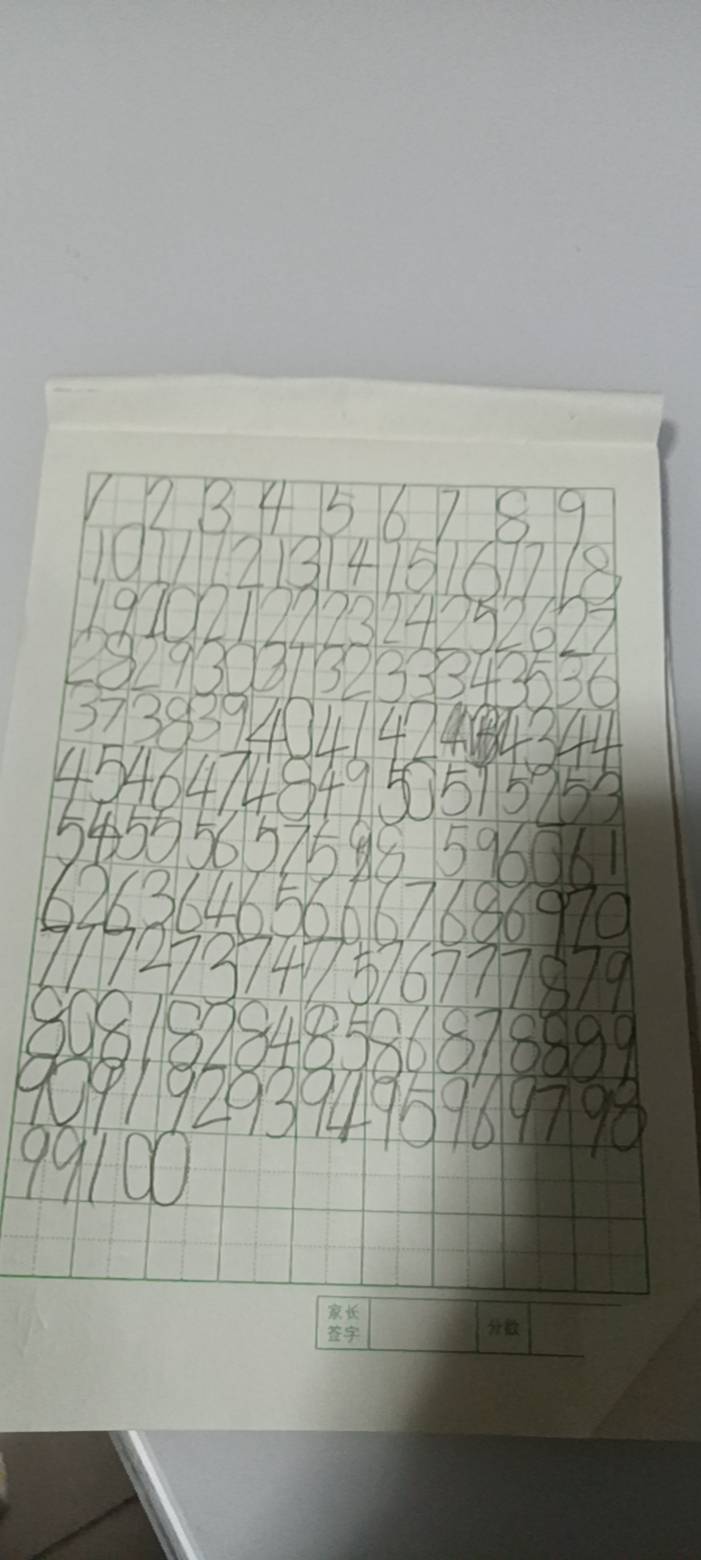 1 2 3 4 5 6 7 8 9
10 11 12 13 14 15 16 17 18
19 10 21 22 23 24 25 26 27
28 29 30 31 32 33 34 35 36
37 38 39 40 41 42 43 44
45 46 47 48 49 50 51 52 53
54 55 56 57 58 59 60 61
62 63 64 65 66 67 68 69 70
71 72 73 74 75 76 77 78 79
80 81 82 84 85 86 87 88 89
90 91 92 93 94 95 96 97 98
99 100
家长签字 分数